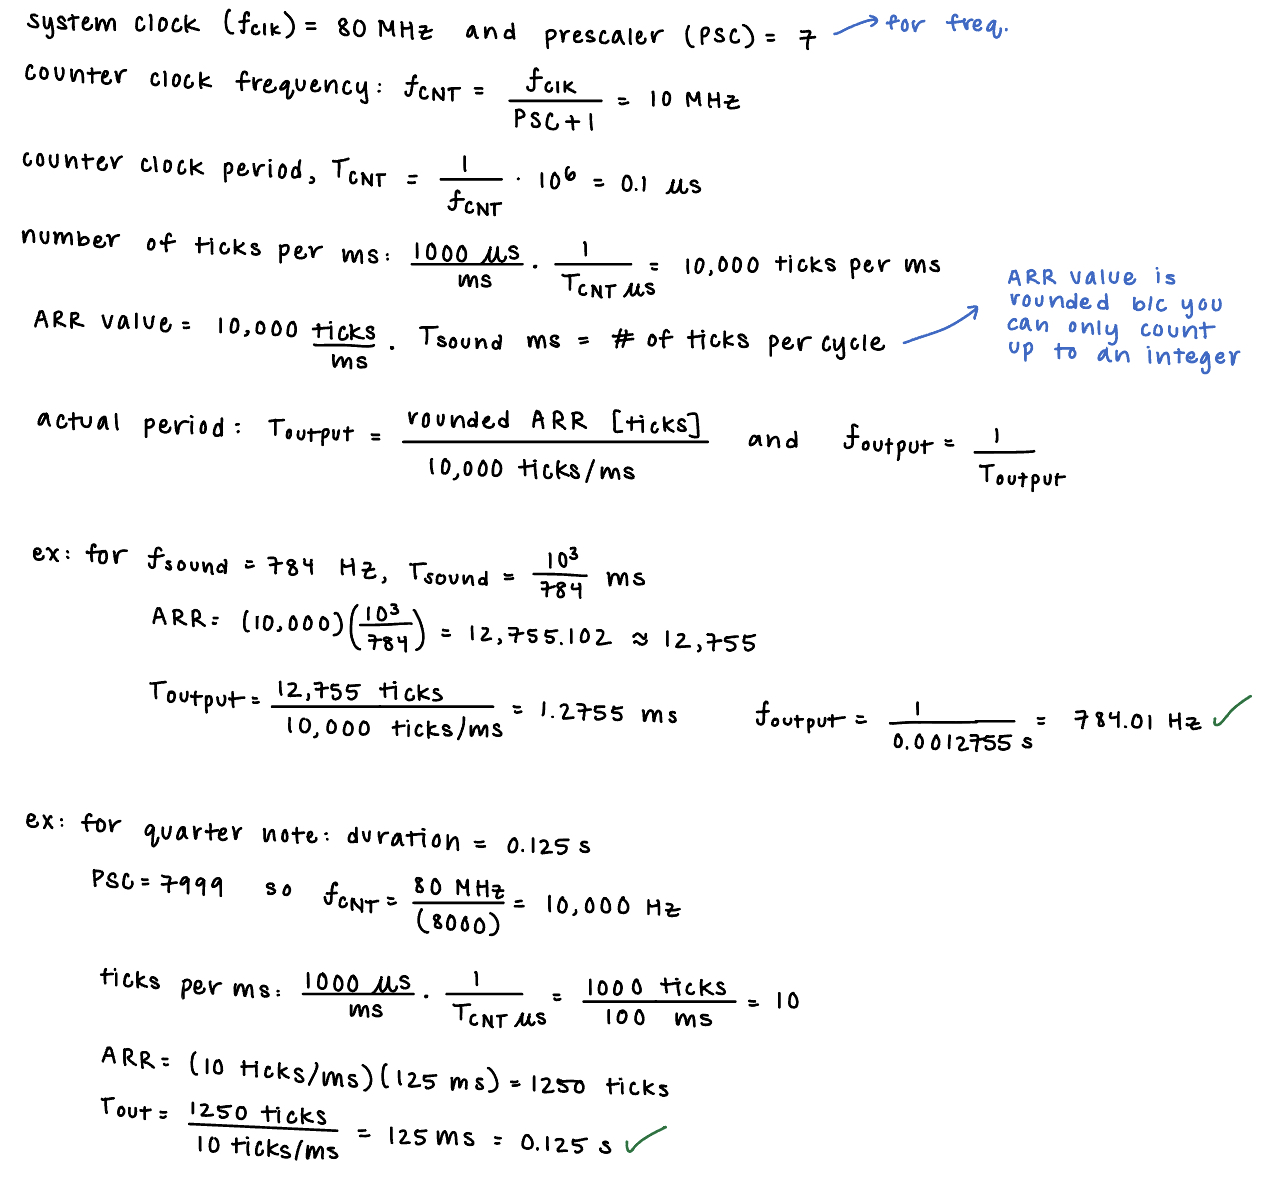 system clock (fclk) = 80 MHz and prescaler (PSC) = 7 → for freq.
counter clock frequency: fCNT = fclk / PSC+1 = 10 MHz
counter clock period, TCNT = 1 / fCNT · 10^6 = 0.1 μs
number of ticks per ms: 1000 μs / ms · 1 / TCNT μs = 10,000 ticks per ms
ARR value = 10,000 ticks / ms · Tsound ms = # of ticks per cycle →
ARR value is
rounded b/c you
can only count
up to an integer
actual period: Toutput = rounded ARR [ticks] / 10,000 ticks/ms and foutput = 1 / Toutput
ex: for fsound = 784 Hz, Tsound = 10^3 / 784 ms
ARR = (10,000)(10^3 / 784) = 12,755.102 ≈ 12,755
Toutput = 12,755 ticks / 10,000 ticks/ms = 1.2755 ms foutput = 1 / 0.0012755 s = 784.01 Hz ✓
ex: for quarter note: duration = 0.125 s
PSC = 7999 so fCNT = 80 MHz / (8000) = 10,000 Hz
ticks per ms: 1000 μs / ms · 1 / TCNT μs = 1000 ticks / 100 ms = 10
ARR = (10 ticks/ms)(125 ms) = 1250 ticks
Tout = 1250 ticks / 10 ticks/ms = 125 ms = 0.125 s ✓